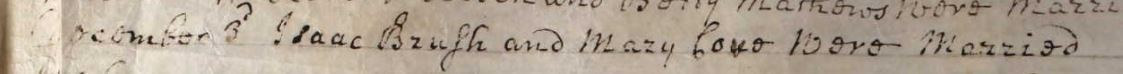 and Betty Mathews Were Marri
December 3d Isaac Brush and Mary Love Were Married